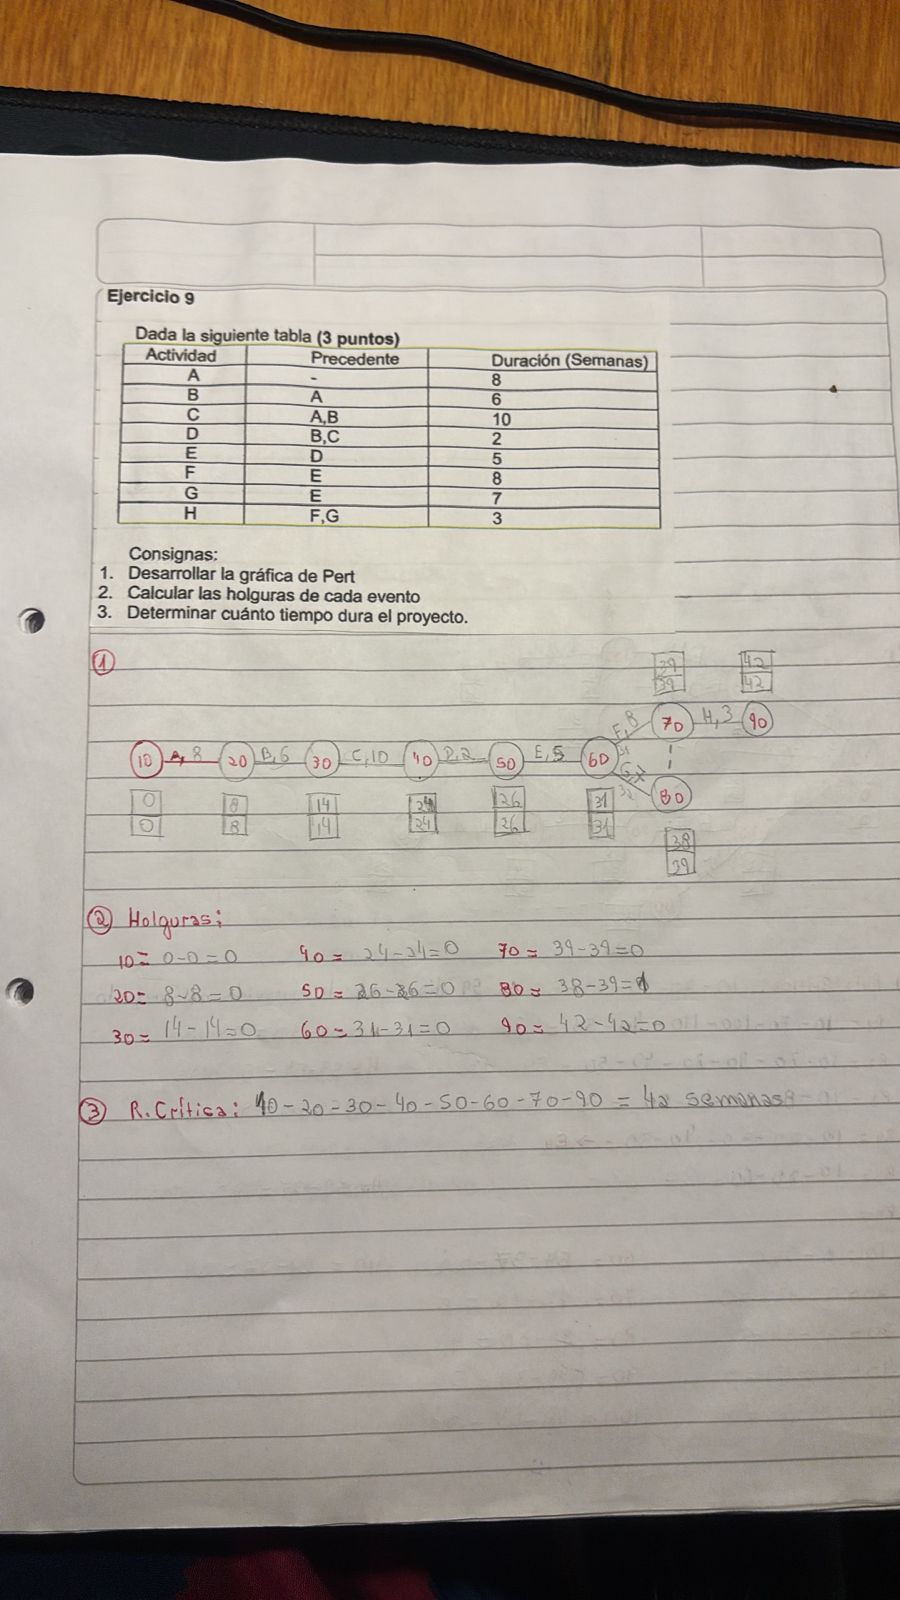 Ejercicio 9
Dada la siguiente tabla (3 puntos)
Actividad Precedente Duración (Semanas)
A - 8
B A 6
C A,B 10
D B,C 2
E D 5
F E 8
G E 7
H F,G 3
Consignas:
1. Desarrollar la gráfica de Pert
2. Calcular las holguras de cada evento
3. Determinar cuánto tiempo dura el proyecto.
1
39 42
39 42
F,8 70 H,3 90
10 A,8 20 B,6 30 C,10 40 D,2 50 E,5 60
31
G,7
32 80
0 8 14 24 26 31
0 8 14 24 26 31
38
39
2 Holguras:
10= 0-0=0 40= 24-24=0 70= 39-39=0
20= 8-8=0 50= 26-26=0 80= 38-39=1
30= 14-14=0 60= 31-31=0 90= 42-42=0
3 R.Crítica: 10-20-30-40-50-60-70-90 = 42 semanas